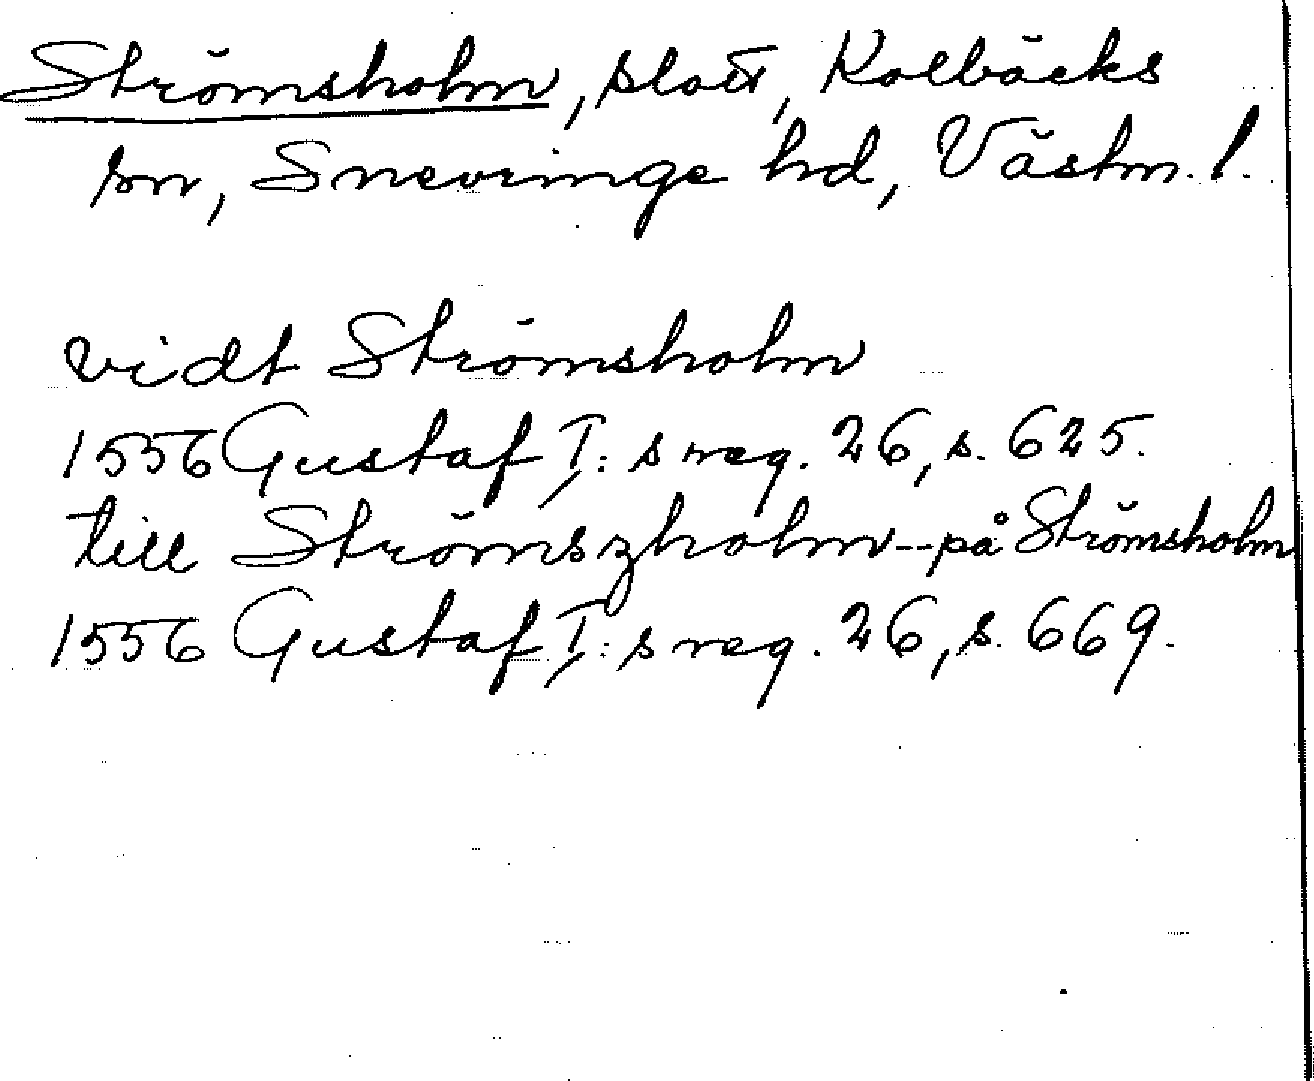 Strömsholm, slott, Kolbäcks
sn, Snevringe hd, Västm. l.
vidt Strömsholm
1556 Gustaf I:s reg. 26, s. 625.
till Strömszholm -- på Strömsholm
1556 Gustaf I:s reg. 26, s. 669.